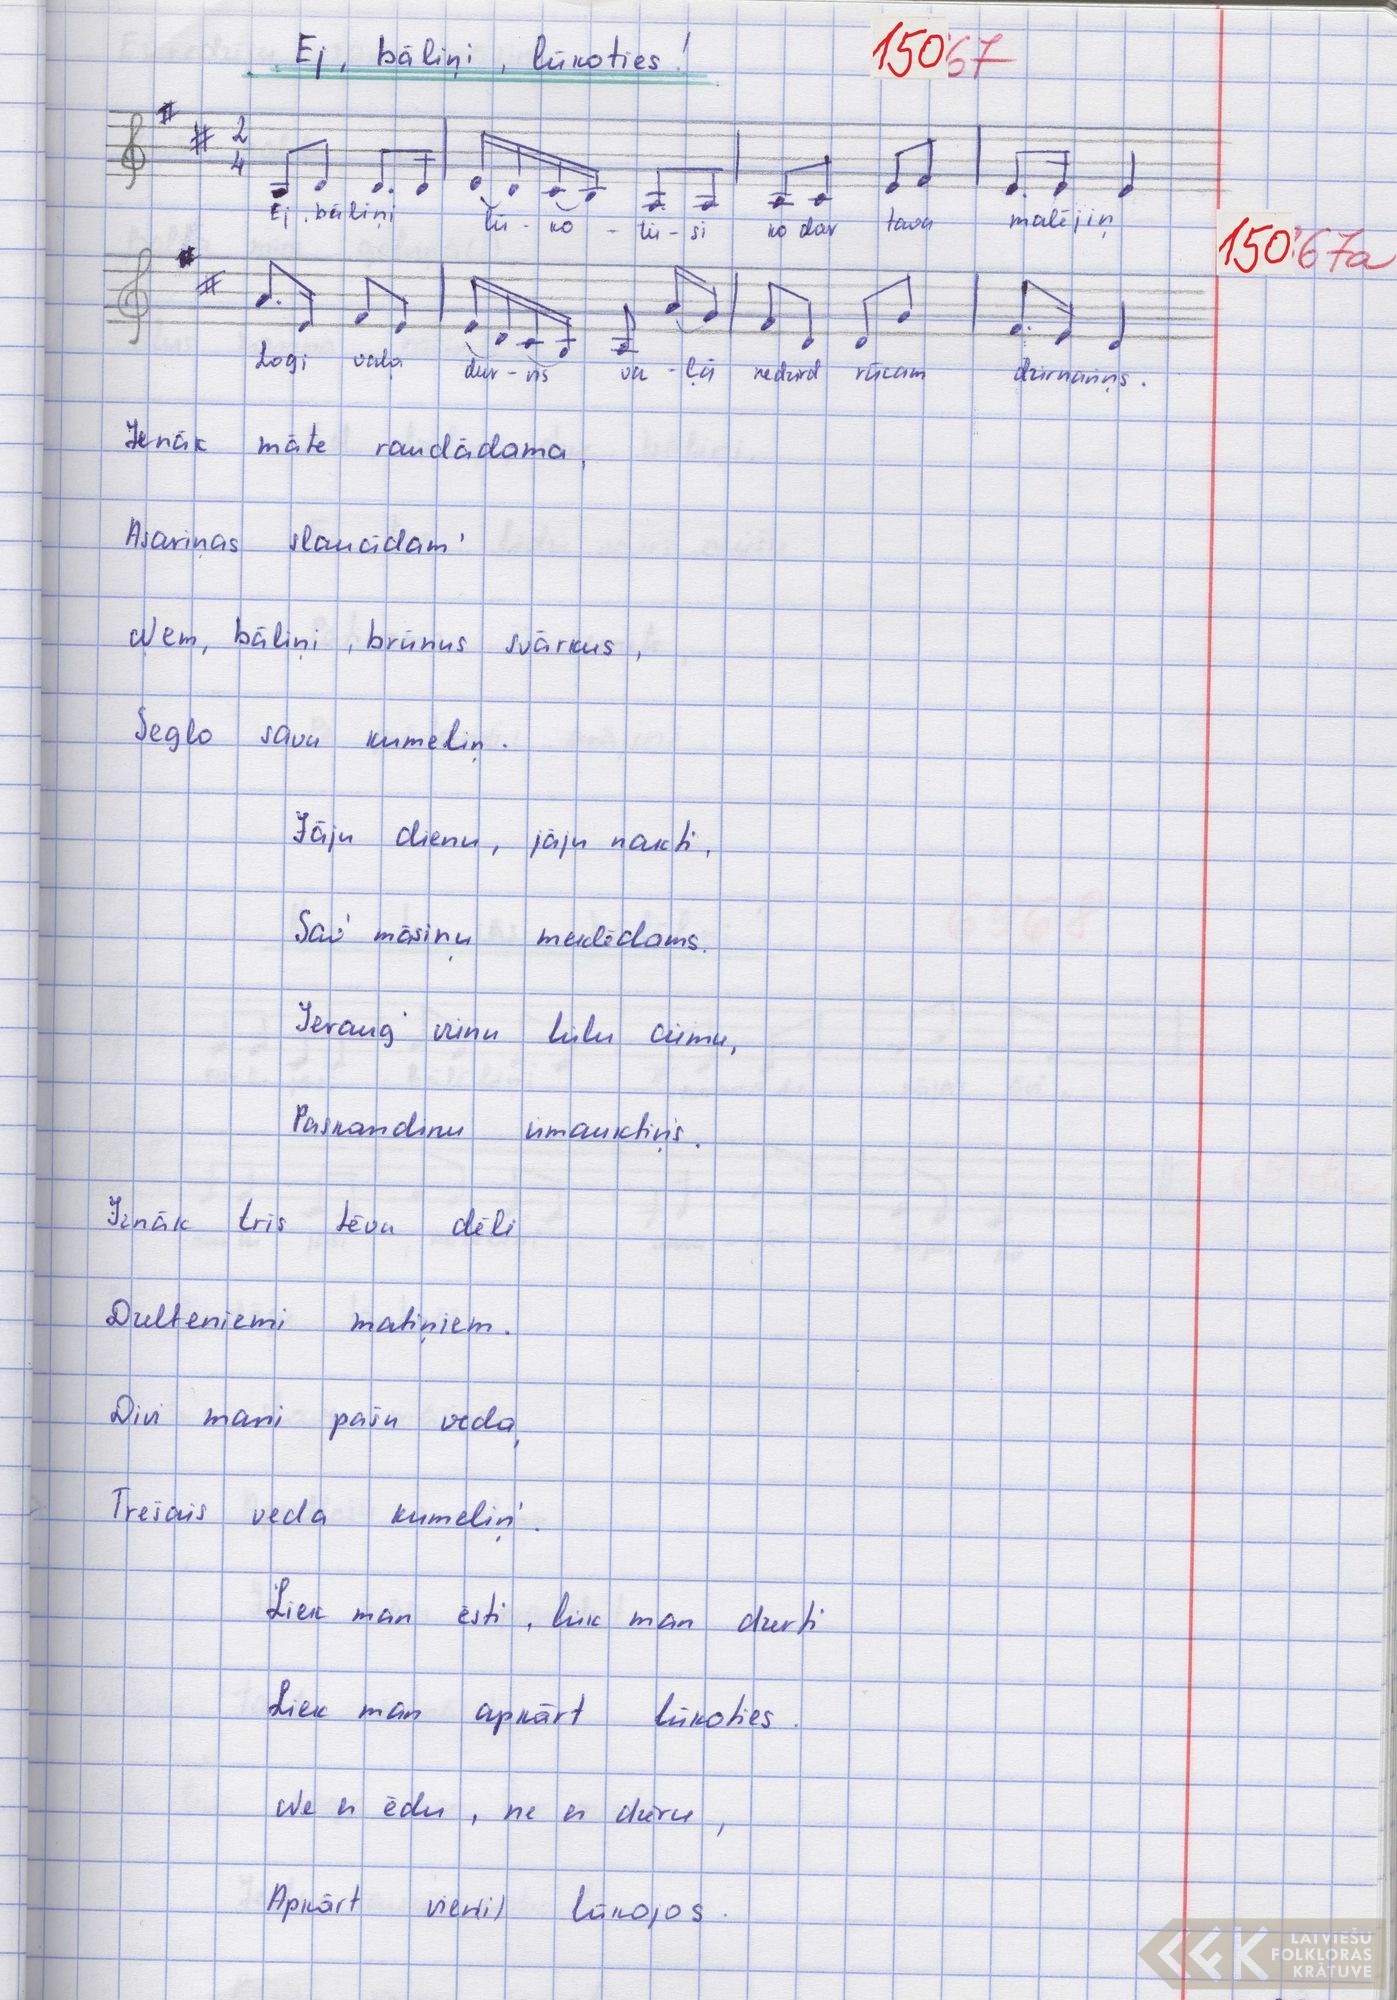 Ej, bāliņi, lūkoties!
150 67
2
4
Ej, bāliņi lū - ko - tie - si ko dar tava malējiņ
150 67a
Logi vaļa dur - vis va - ļā nedzird rūcam dzirnaviņs.
Ienāk māte raudādama,
Asariņas slaucīdam'
Ņem, bāliņi, brūnus svārkus,
Seglo savu kumeliņ.
Jāju dienu, jāju nakti,
Sav' māsiņu meklēdams.
Ieraug' vienu lielu ciemu,
Paskandinu iemauktiņs.
Iznāk trīs tēva dēli
Dzelteniemi matiņiem.
Divi mani pašu veda,
Trešais veda kumeliņ'.
Liek man ēsti, liek man dzerti
Liek man apkārt lūkoties.
Ne es ēdu, ne es dzēru,
Apkārt vienil lūkojos.
LATVIEŠU
FOLKLORAS
KRĀTUVE